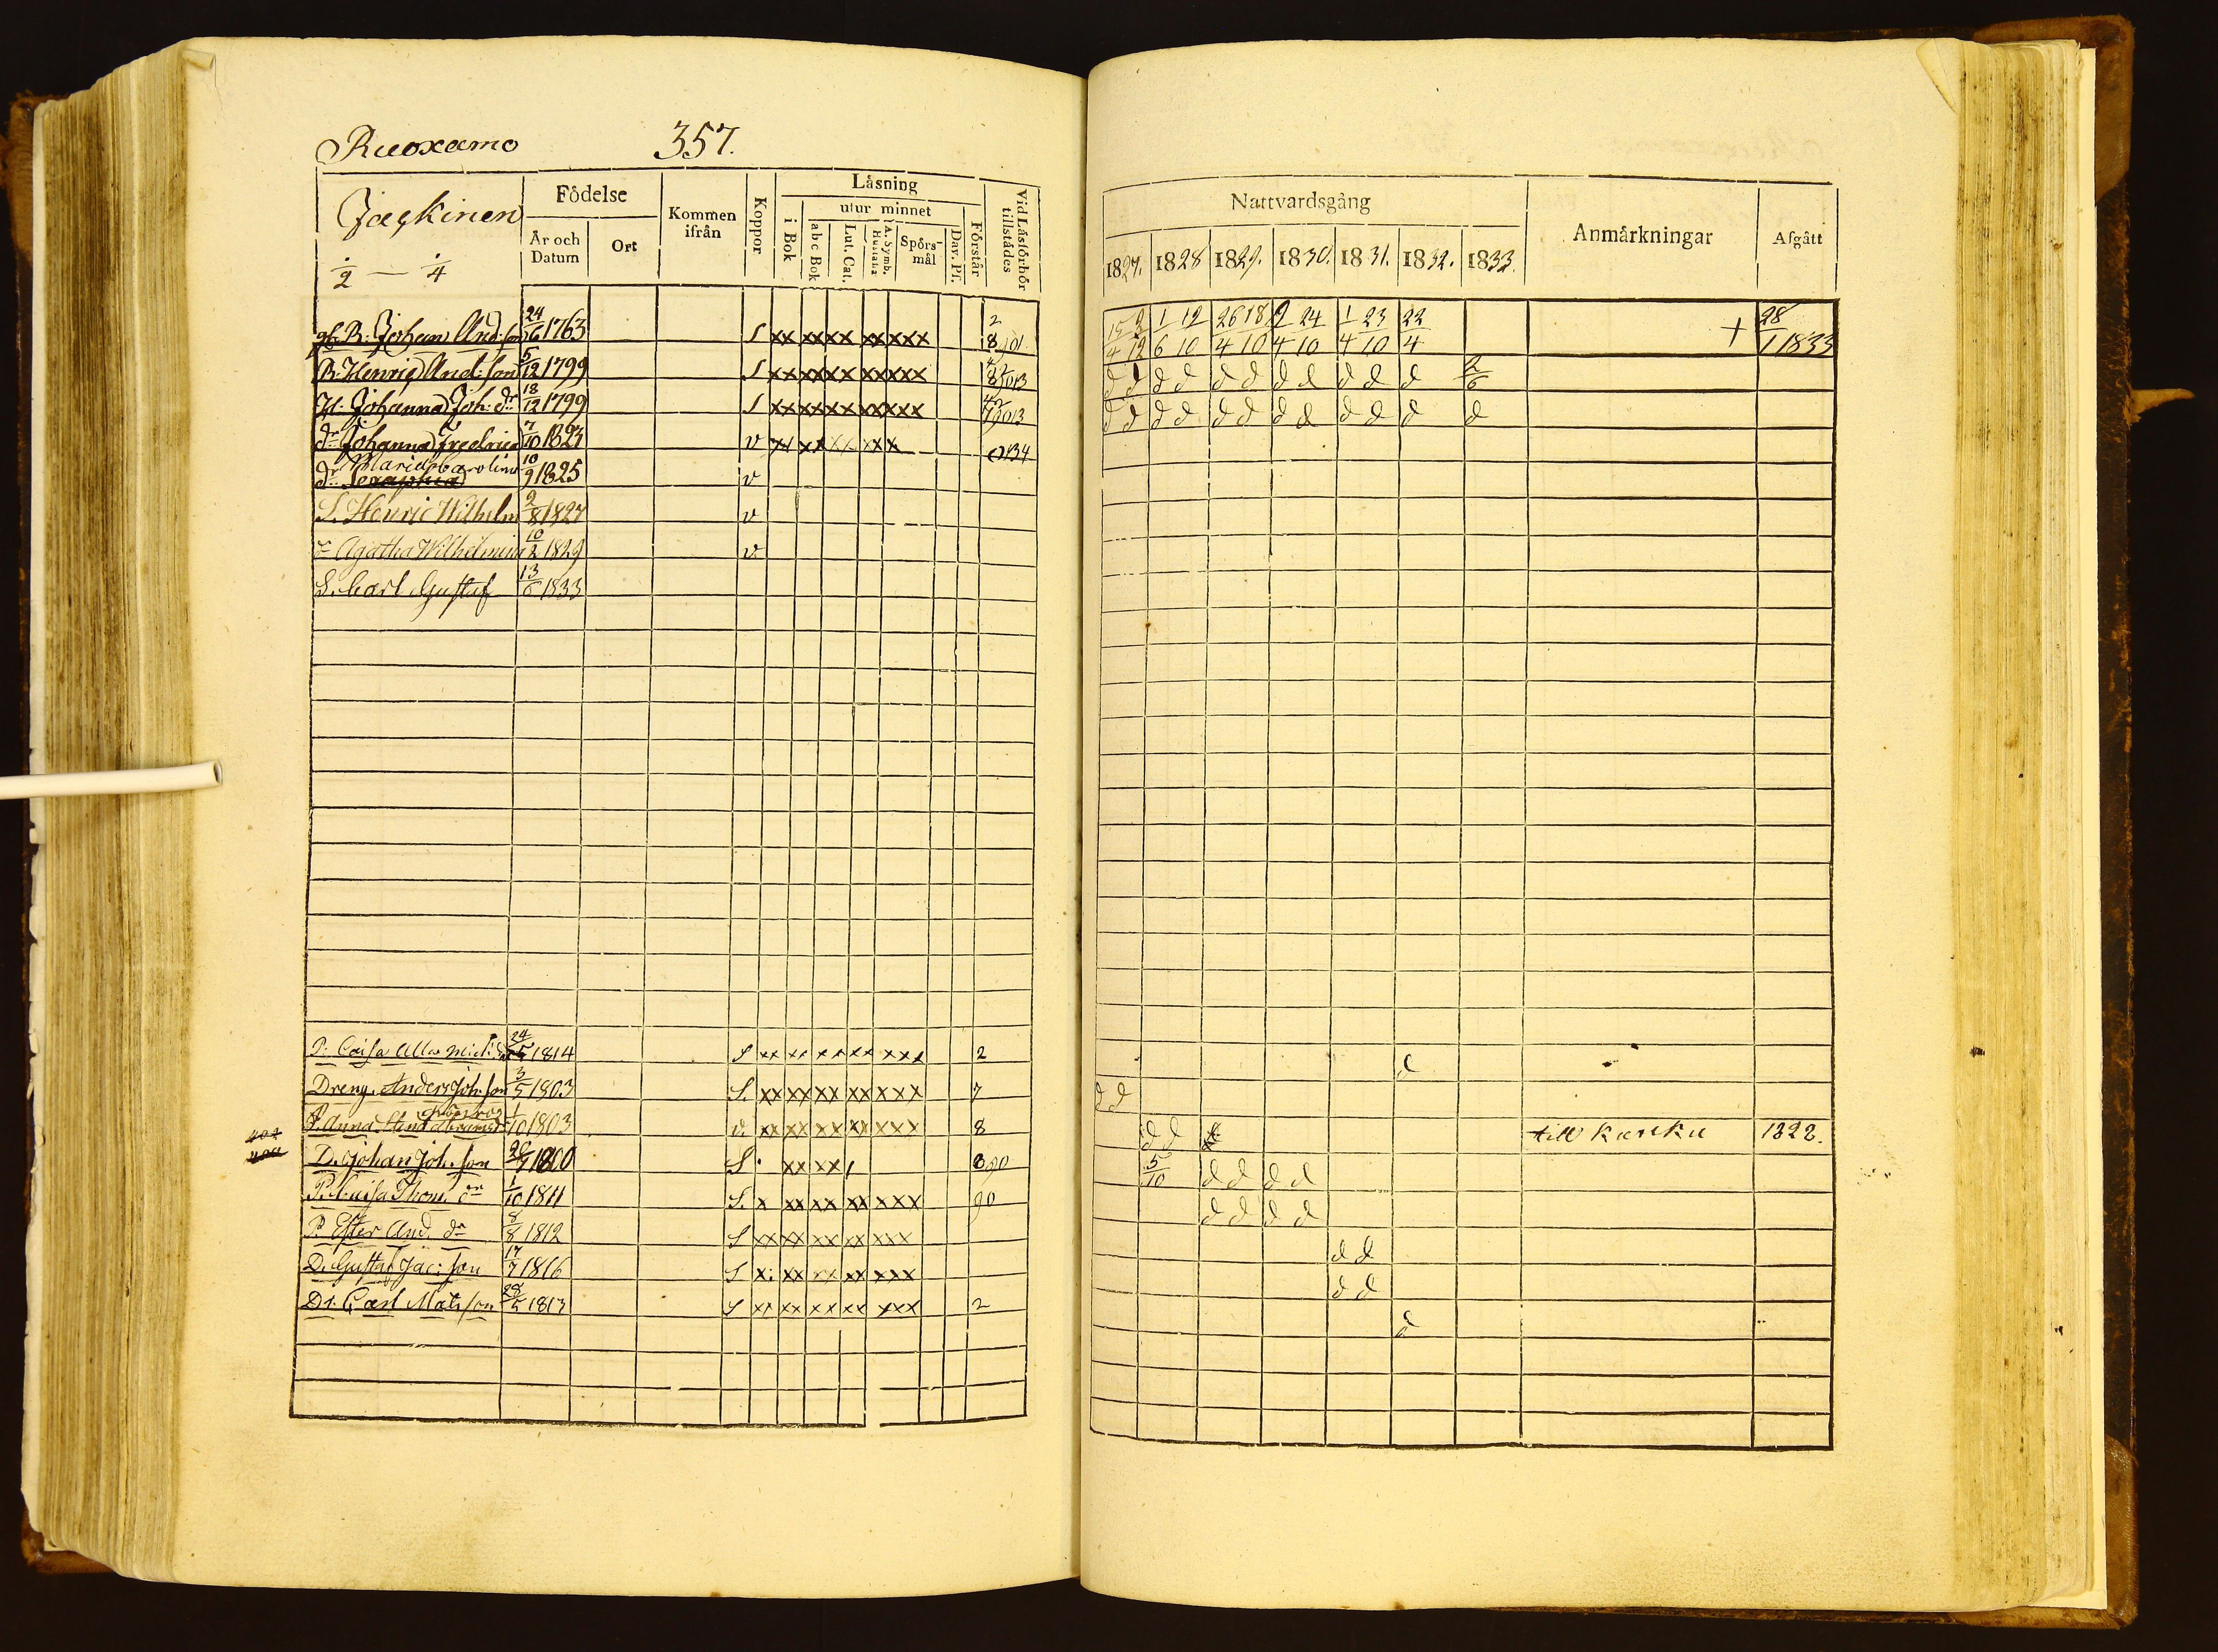 Ruoxamo 357.
Jaskinen
1/2 — 1/4
Födelse
År och Datum
Ort
Kommen ifrån
Koppor
Låsning
i Bok
utur minnet
abc Bok
Lut. Cat.
A. Symb. Hustafla
Spörsmål
Dav. Ps.
Förstår
Vid Läsförhör tillstädes
gb. B. Johan And: son 24/6 1763 S xx xxxx xxxxx 2 8
B. Henric And: son 5/12 1799 S xx xxxx xxxxx
H. Johanna Joh: dr 18/12 1799 S xx xxxx xxxxx
dr Johanna Fredrica 7/10 182 v xx xx xx xxx
Maria Carolina
dr Seraphia 10/9 1825 v
S. Henric Wilhelm 2/8 1827 v
dr Agatha Wilhelmina 10/2 1829 v
S. Carl Gustaf 13/6 1833
P. Caisa Mich: dr 24/5 1814 S xx xx xx xx xxx 2
Dreng. Anders Joh. son 3/5 1803 S. xx xx xx xx xxx 7
P. Anna Abramsdr 1/10 1803 v. xx xx xx xx xxx 8
D. Johan Joh. son 26/7 1800 S xx xx
P. Caisa Thom. dr 1/10 1811 S. x xx xx xx xxx 90
P. Ester And. dr 8/8 1812 S xx xx xx xx xxx
D. Gustaf Jac: son 17/7 1816 S x. xx xx xx xxx
Dr. Carl Mats son 28/5 1813 S xx xx xx xx xxx 2
Nattvardsgång
Anmärkningar
Afgått
1827. 1828 1829. 1830. 1831. 1832. 1833.
15/4 2/12 1/6 12/10 26/4 18/10 9/4 24/10 1/4 23/10 22/4 + 28/1 1833
d d d d d d d d d d d 2/6
d d d d d d d d d d d d
d
d d
d d till Karku 1828.
5/10 d d d d
d d d d
d d
d d
d